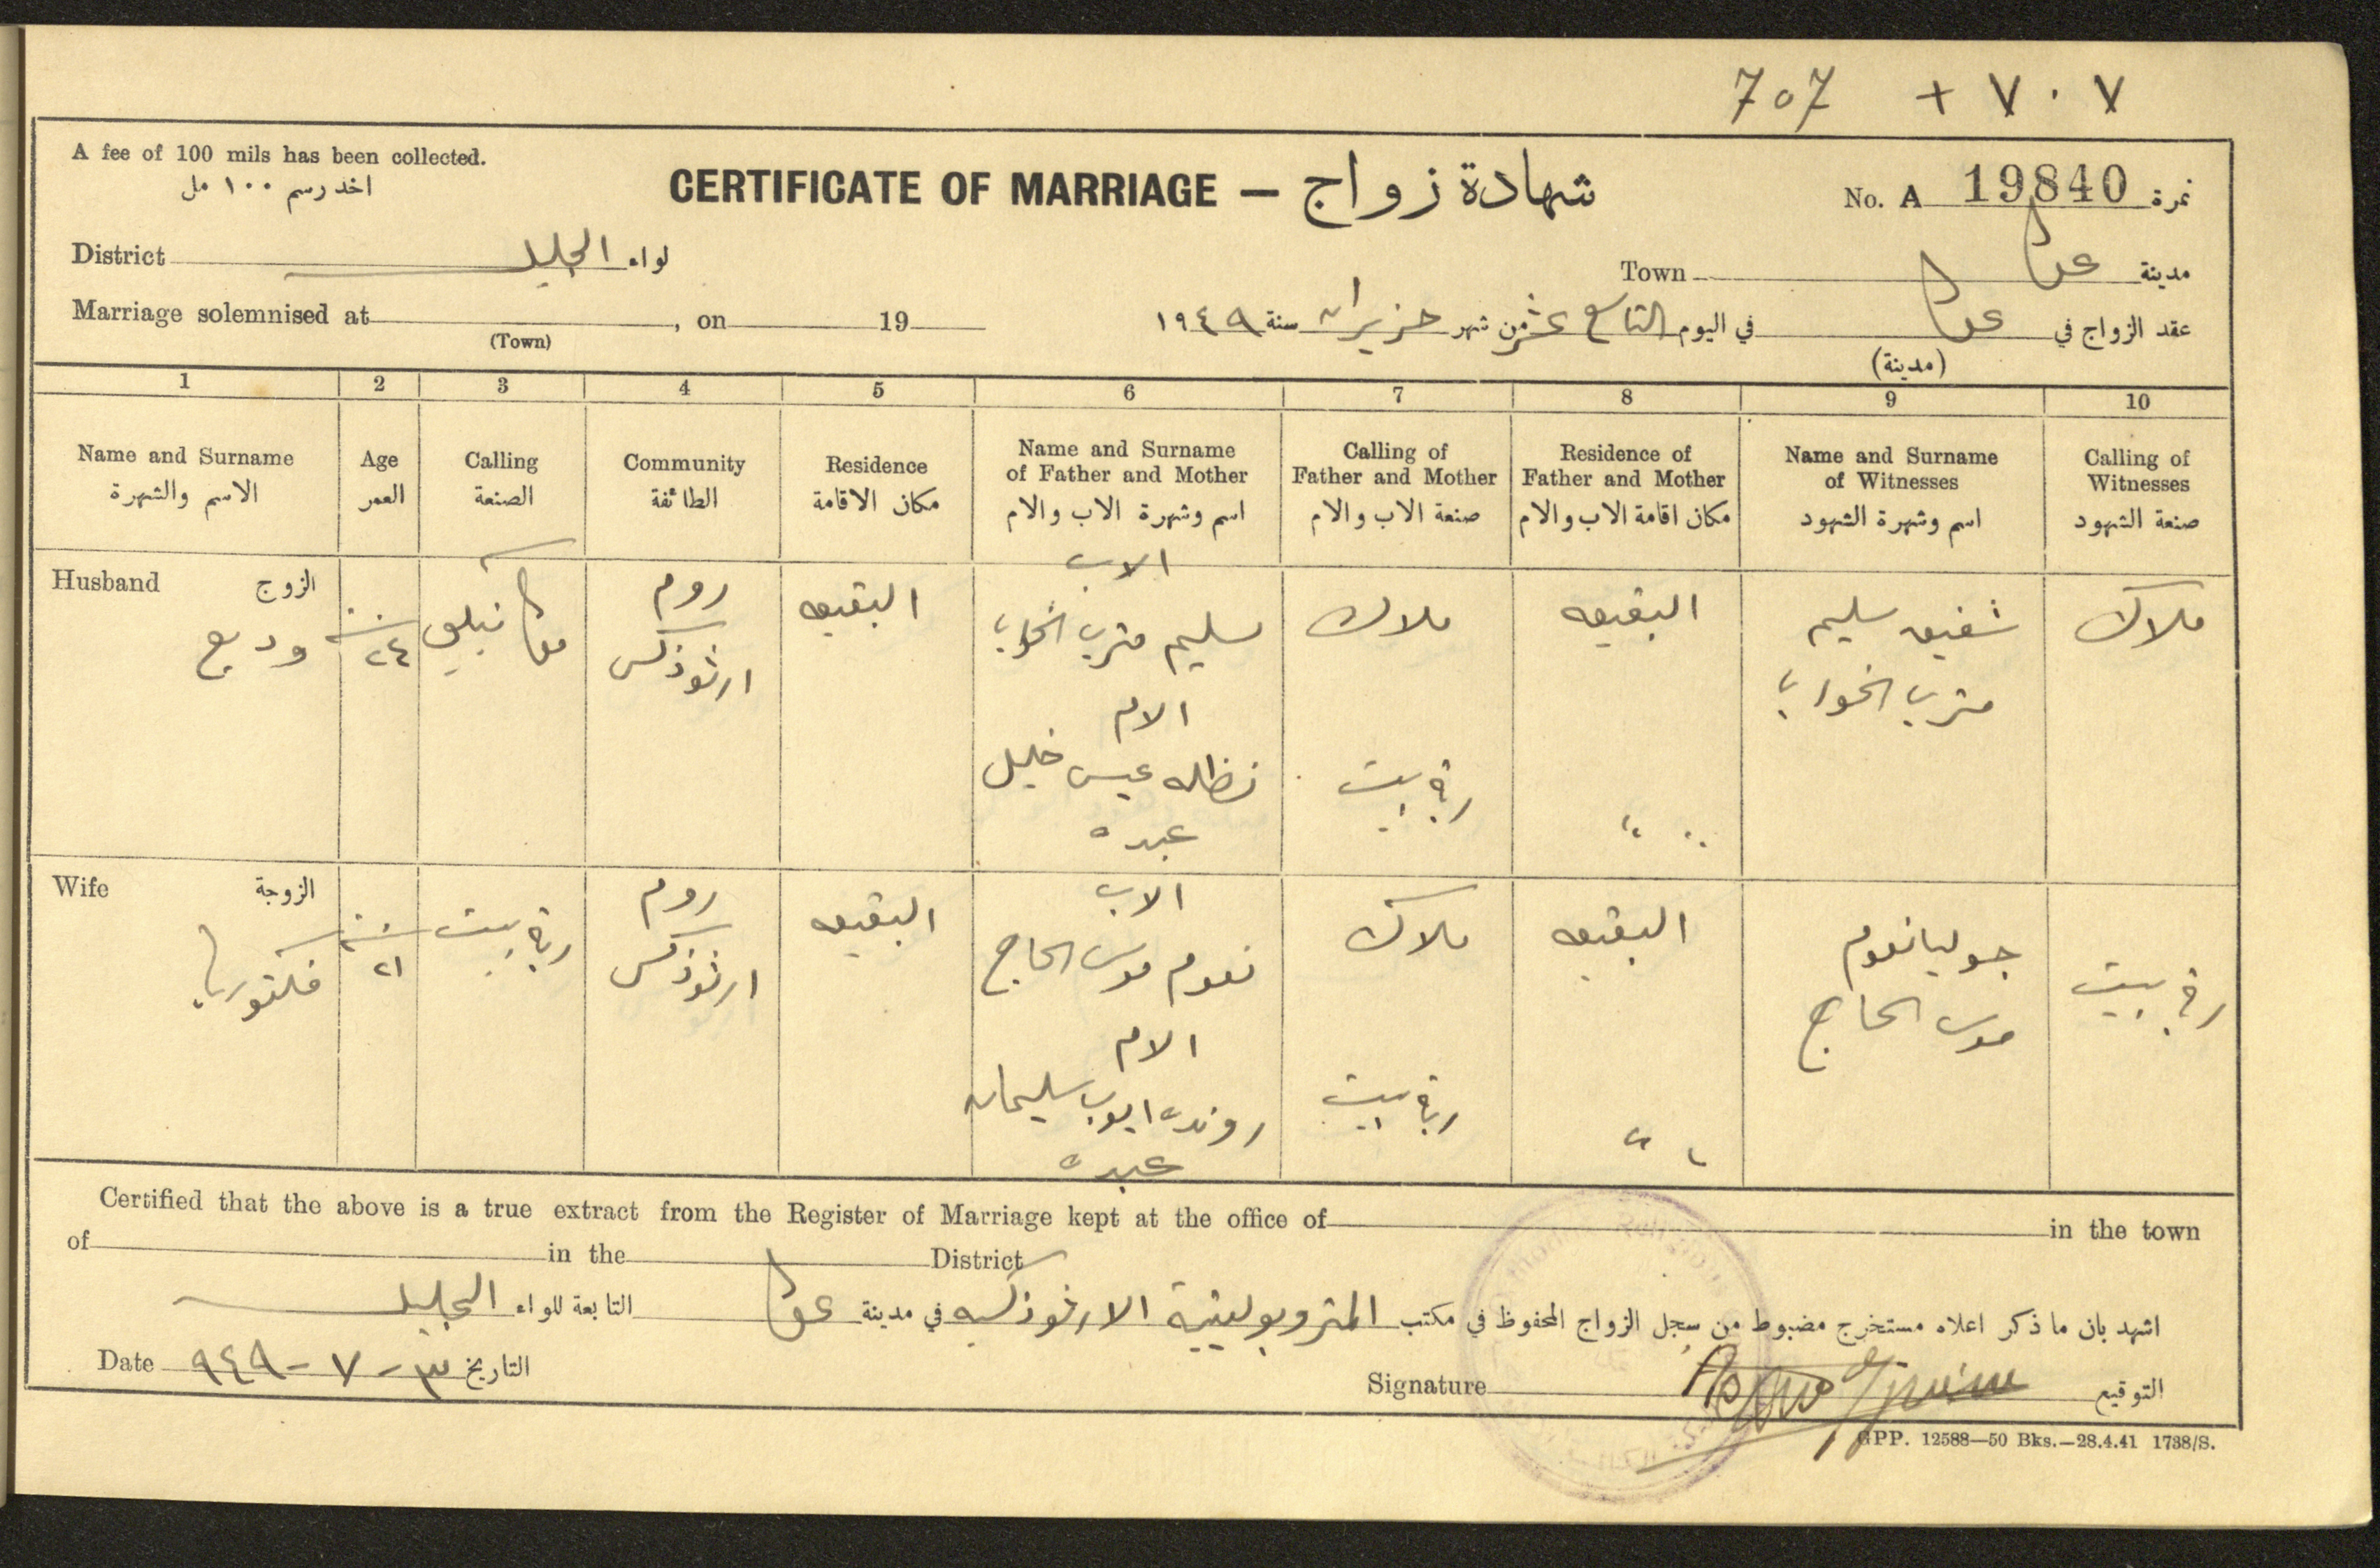 707 + ٧٠٧
A fee of 100 mils has been collected.
اخذ رسم ١٠٠ مل
CERTIFICATE OF MARRIAGE — شهادة زواج
No. A 19840 نمرة
District الجليل لواء
Town عكا مدينة
Marriage solemnised at , on 19
(Town)
عقد الزواج في عكا في اليوم التاسع عشر من شهر حزيران سنة ١٩٤٩
(مدينة)
1 2 3 4 5 6 7 8 9 10
Name and Surname
الاسم والشهرة
Age
العمر
Calling
الصنعة
Community
الطائفة
Residence
مكان الاقامة
Name and Surname
of Father and Mother
اسم وشهرة الاب والام
Calling of
Father and Mother
صنعة الاب والام
Residence of
Father and Mother
مكان اقامة الاب والام
Name and Surname
of Witnesses
اسم وشهرة الشهود
Calling of
Witnesses
صنعة الشهود
Husband الزوج
وديع
سنة
٢٤
روم
ارثوذكس
البقيعه
الاب
سليم متري الخوري
الام
عيسى خليل
عبده
ملاك
ربة بيت
البقيعه
" "
شفيق سليم
متري الخوري
ملاك
Wife الزوجة
فكتوريا
سنة
٢١
ربة بيت
روم
ارثوذكس
البقيعه
الاب
نعوم موسى الحاج
الام
ايوب سليمان
عبده
ملاك
ربة بيت
البقيعه
" "
جوليا نعوم
موسى الحاج
ربة بيت
Certified that the above is a true extract from the Register of Marriage kept at the office of in the town
of in the District
اشهد بان ما ذكر اعلاه مستخرج مضبوط من سجل الزواج المحفوظ في مكتب المتروبوليتية الارثوذكسيه في مدينة عكا التابعة للواء الجليل
Date ٣-٧-٩٤٩ التاريخ
Signature التوقيع
GPP. 12588—50 Bks.—28.4.41 1738/S.